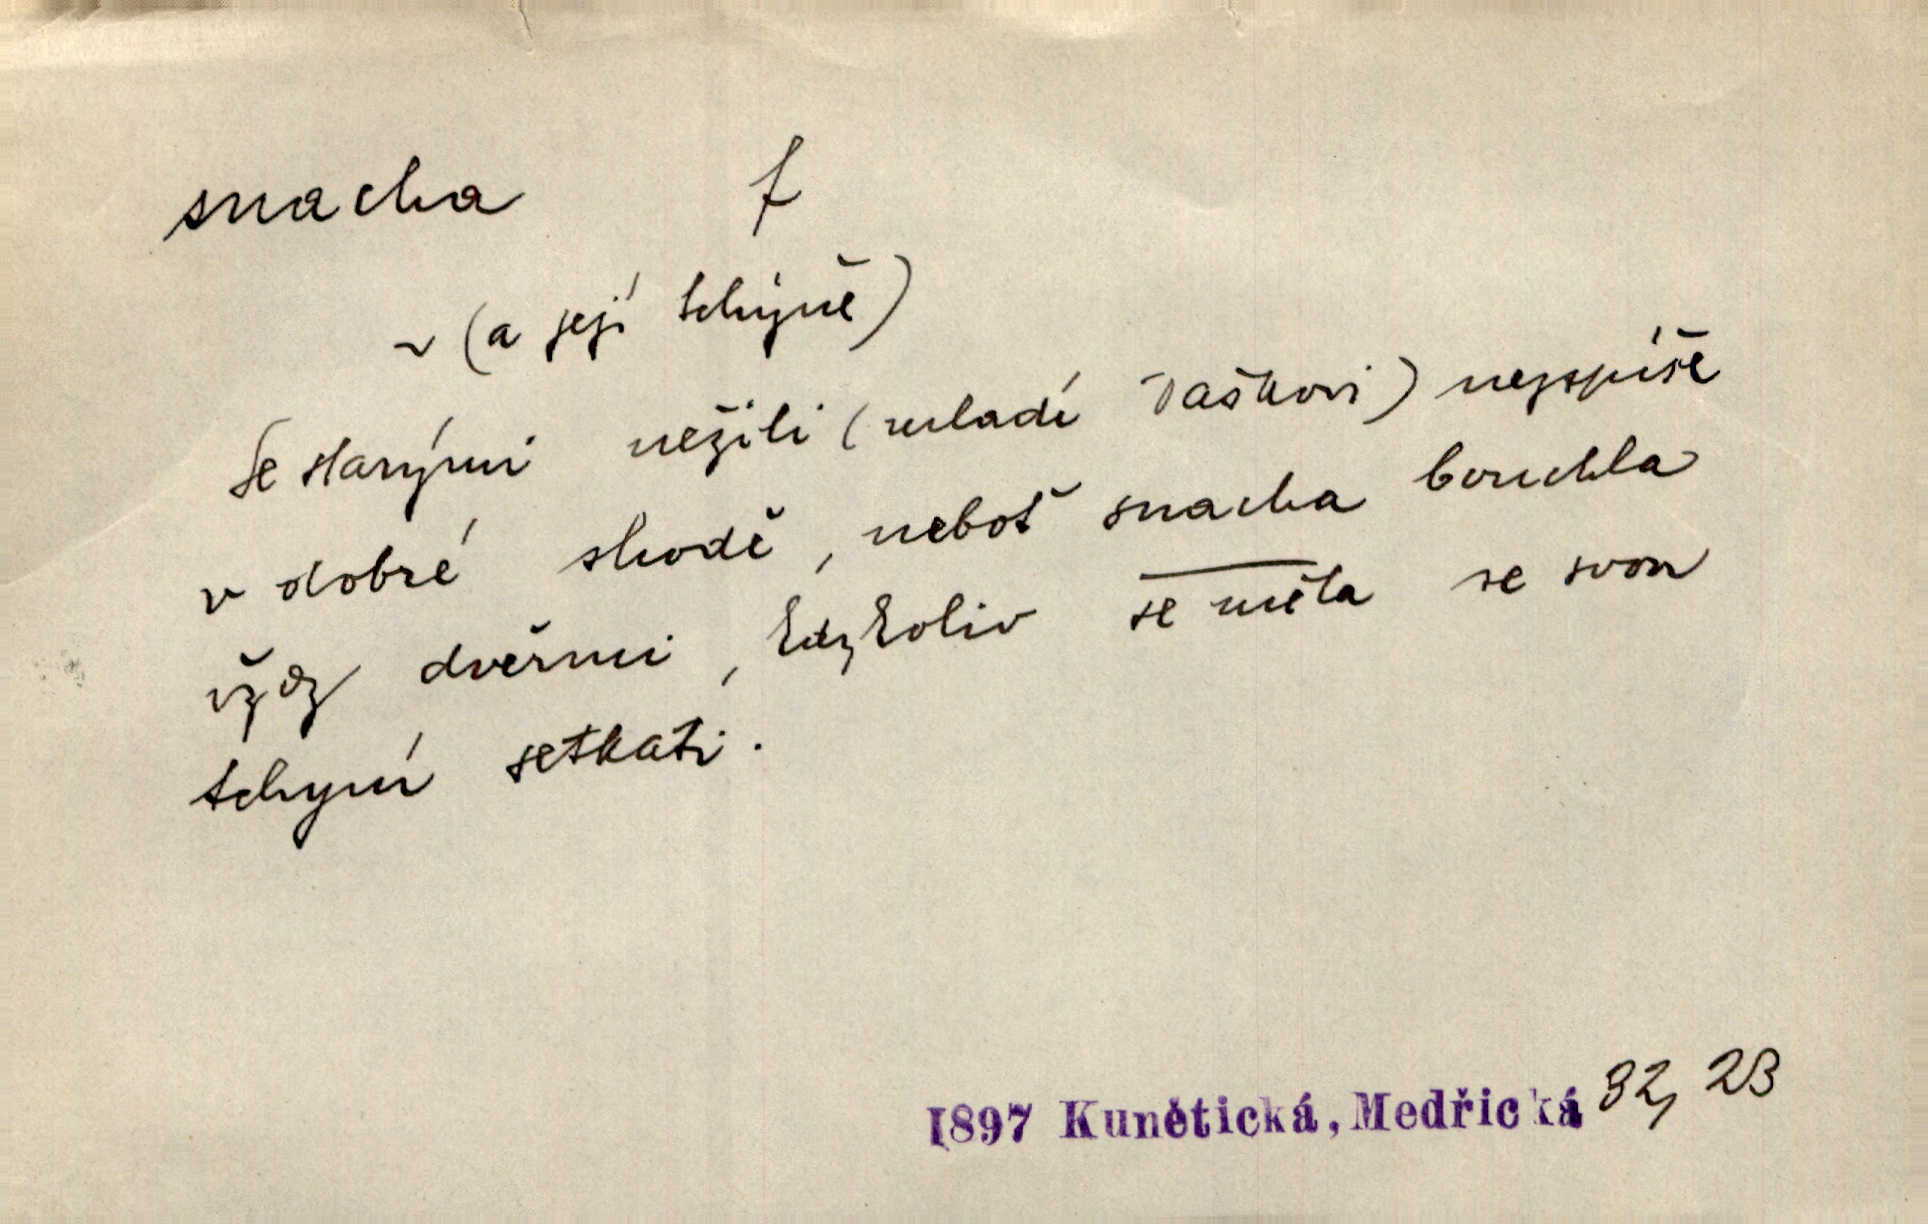 snacha f
~ (a její tchýně)
Se starými nežili (mladí Vaškovi) nejspíše
v dobré shodě, neboť snacha bouchla
vždy dveřmi, kdykoliv se měla se svou
tchyní setkati.
1897 Kunětická, Medřická 82, 23